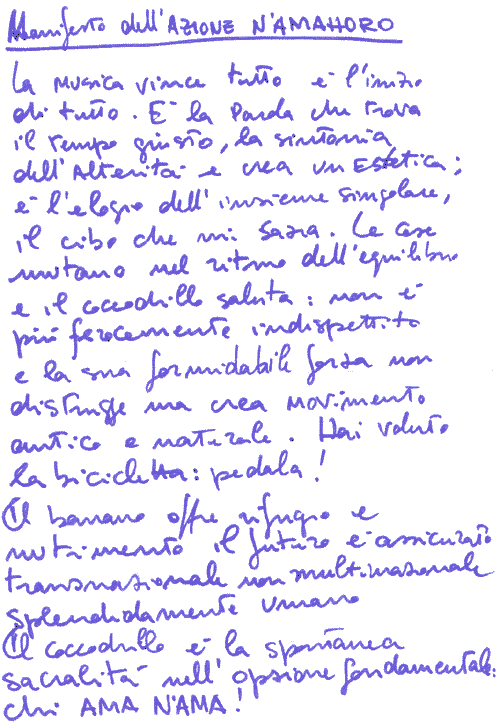 Manifesto dell'AZIONE N'AMAHORO
La musica vince tutto è l'inizio
di tutto. È la Parola che trova
il tempo giusto, la sintonia
dell'Alterità e crea un Estetica;
è l'elogio dell'insieme singolare,
il cibo che mi sazia. Le cose
mutano nel ritmo dell'equilibrio
e il coccodrillo saluta: non è
più ferocemente indispettito
e la sua formidabile forza non
distrugge ma crea movimento
antico e naturale. Hai voluto
la bicicletta: pedala!
Il banano offre rifugio e
nutrimento il futuro è assicurato
transnazionale non multinazionale
splendidamente umano
Il coccodrillo è la spontanea
sacralità nell'opzione fondamentale:
chi AMA N'AMA!